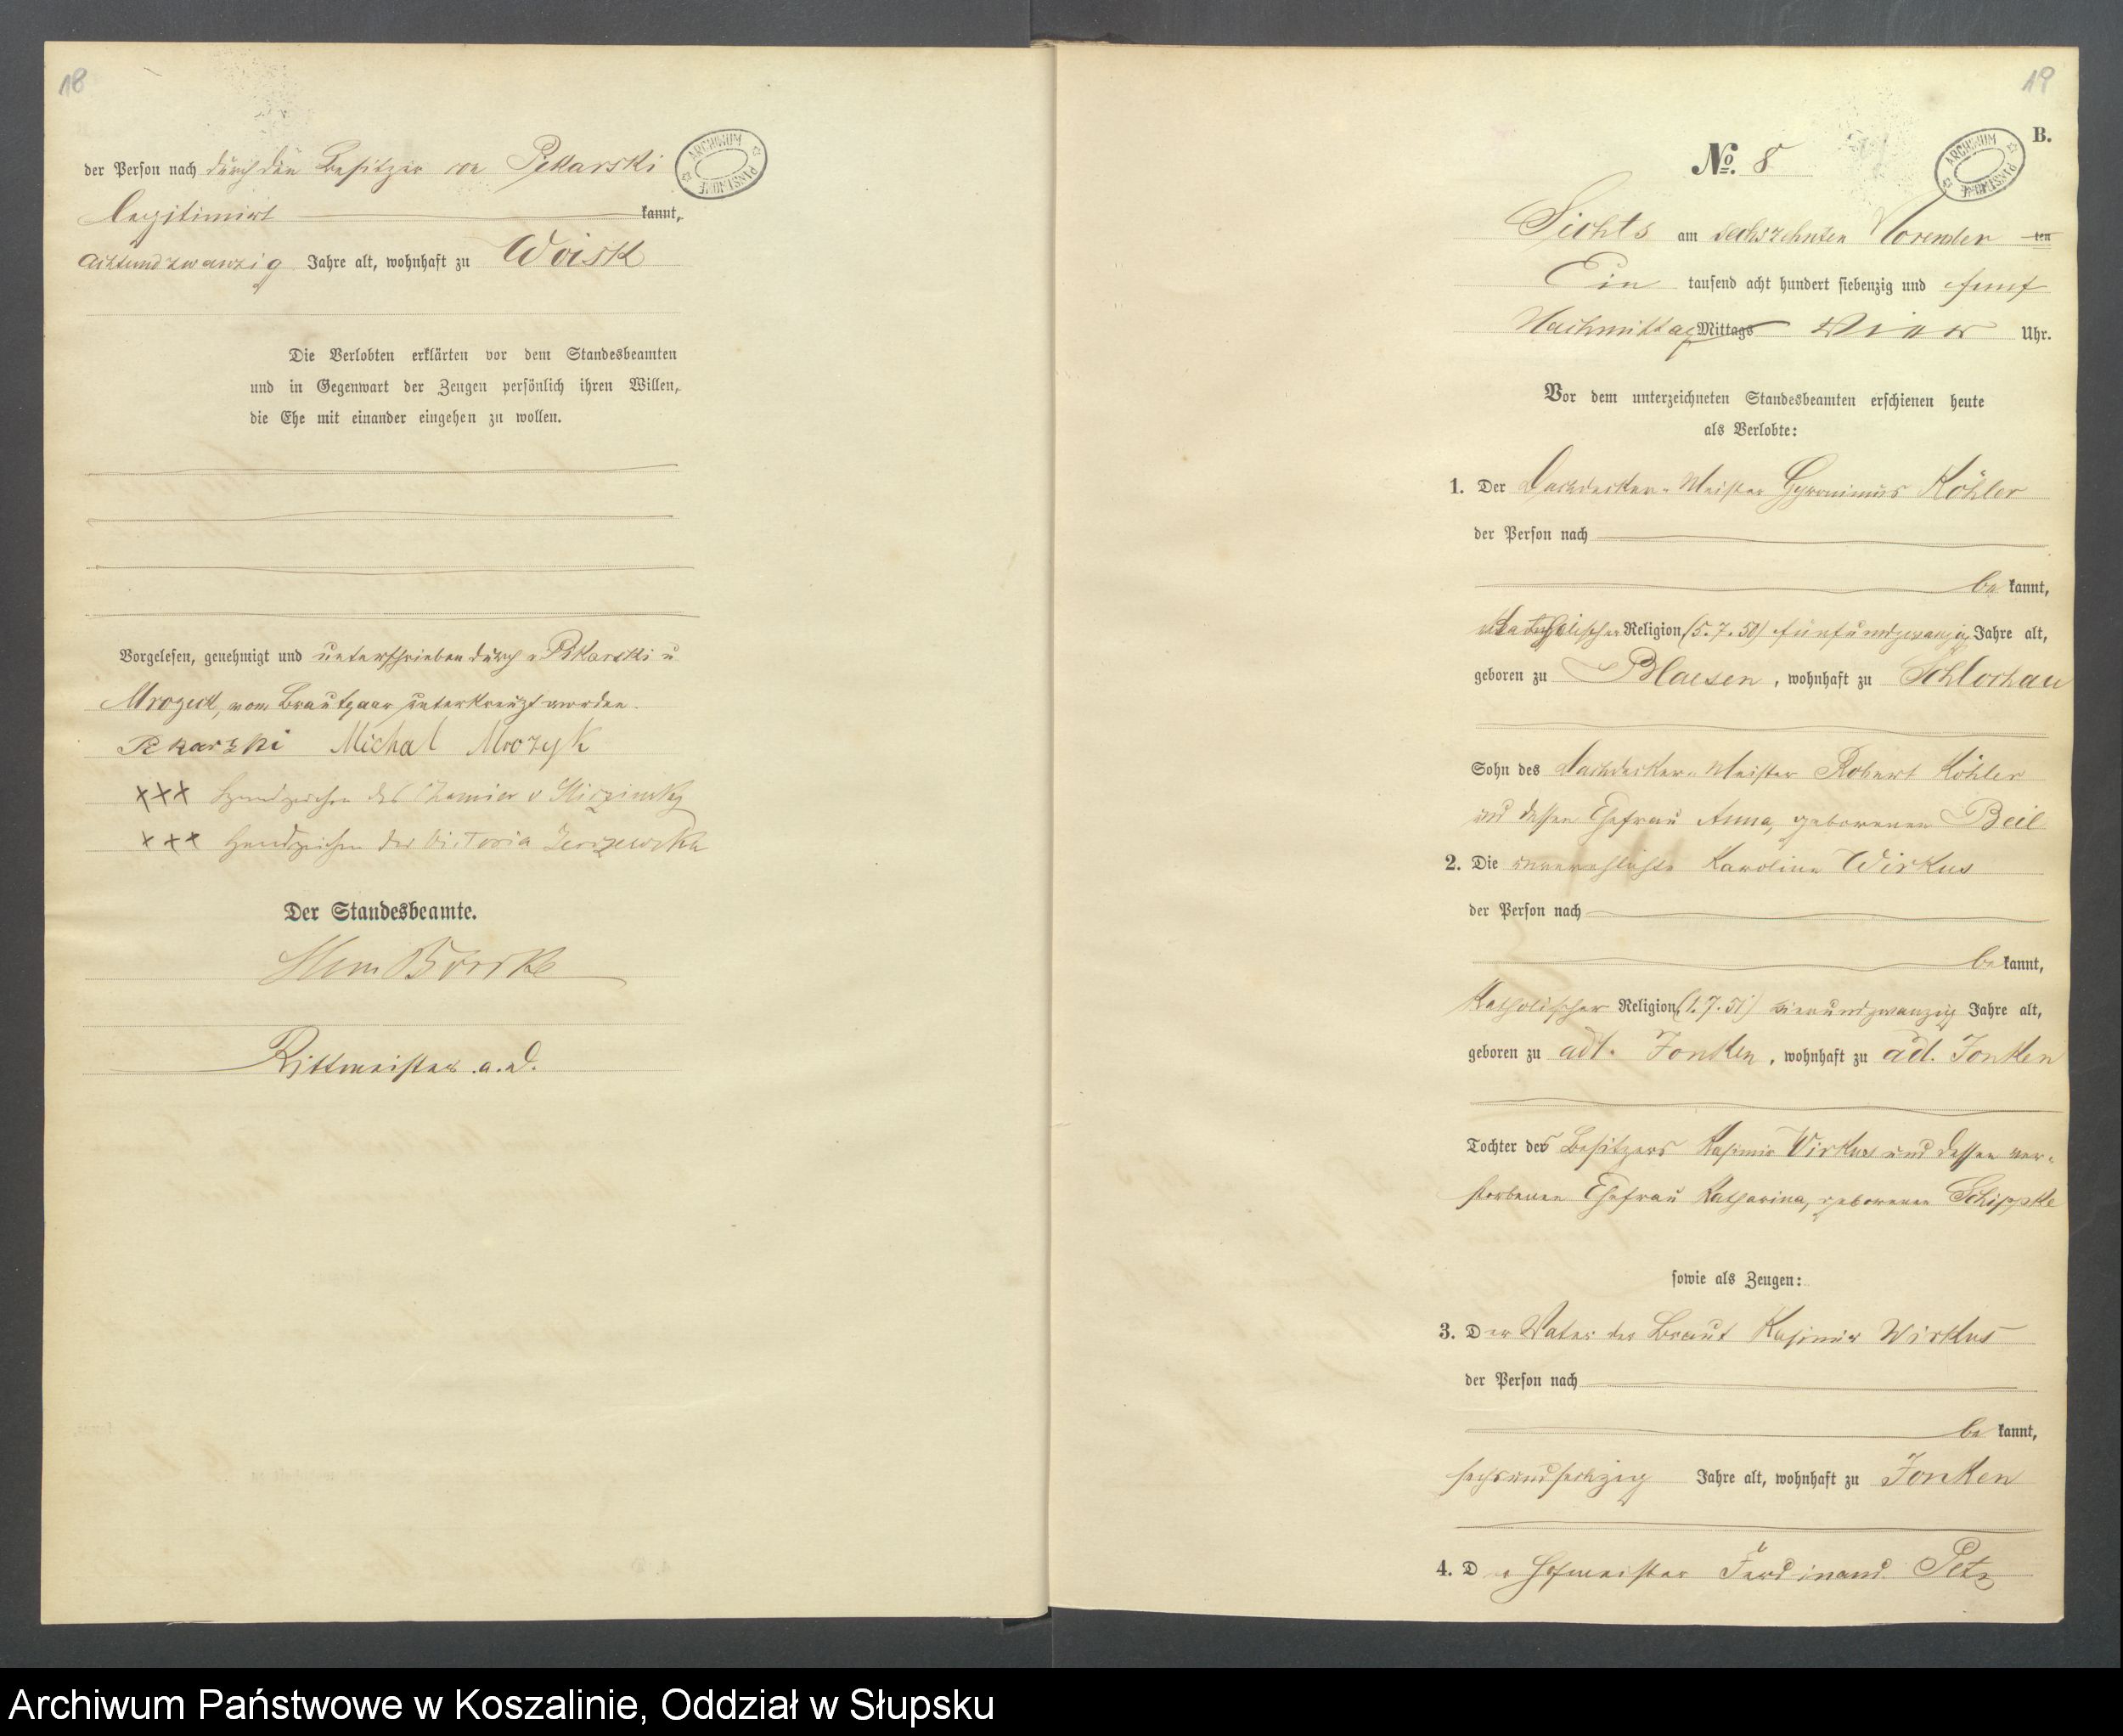 18
der Person nach durch den Besitzer von Pekarski
legitimirt kannt,
achtundzwanzig Jahre alt, wohnhaft zu Woisk
ARCHIWUM PAŃSTWOWE
Die Verlobten erklärten vor dem Standesbeamten
und in Gegenwart der Zeugen persönlich ihren Willen,
die Ehe mit einander eingehen zu wollen.
Vorgelesen, genehmigt und unterschrieben durch v Pekarski u
Mrozeck, vom Brautpaar unterkreuzt worden.
Pekarzki Michal Mrozyk
+++ Handzeichen des v
+++ Handzeichen der Victoria
Der Standesbeamte.
Rittmeister a. D.
19
B.
No. 8
ARCHIWUM PAŃSTWOWE
Sichts am sechszehnten November ten
Ein tausend acht hundert siebenzig und fünf
Nachmittag Mittags Vier Uhr.
Vor dem unterzeichneten Standesbeamten erschienen heute
als Verlobte:
1. Der Dachdecker-Meister Hyronimus Köhler
der Person nach
be kannt,
katholischer Religion (5.7.50) fünfundzwanzig Jahre alt,
geboren zu , wohnhaft zu Schlochau
Sohn des Dachdecker-Meister Robert Köhler
und dessen Ehefrau Anna, geborenen Beil
2. Die unverehlichte Karoline Wirkus
der Person nach
be kannt,
Katholischer Religion (1.7.51) vierundzwanzig Jahre alt,
geboren zu adl. Jonken, wohnhaft zu ad. Jonken
Tochter des Besitzers Kasimir Wirkus und dessen ver-
storbenen Ehefrau Katharina, geborenen Schippke
sowie als Zeugen:
3. Der Vater der Braut Kasimir Wirkus
der Person nach
be kannt,
sechsundsechzig Jahre alt, wohnhaft zu Jonken
4. D er Hofmeister Ferdinand Petz
Archiwum Państwowe w Koszalinie, Oddział w Słupsku